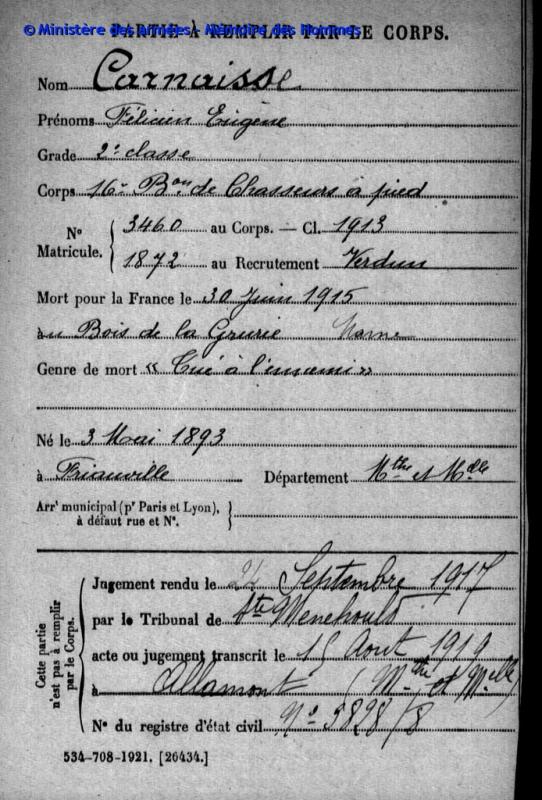 © Ministère des armées - Mémoire des Hommes
PARTIE À REMPLIR PAR LE CORPS.
Nom Carnaisse
Prénoms Félicien Eugène
Grade 2e classe
Corps 16e Bon de Chasseurs à pied
No Matricule. { 3460 au Corps. — Cl. 1913
1872 au Recrutement Verdun
Mort pour la France le 30 Juin 1915
au Bois de la Grurie Marne
Genre de mort « Tué à l'ennemi »
Né le 3 Mai 1893
à Friauville Département Mthe et Mlle
Arrt municipal (pr Paris et Lyon),
à défaut rue et No.
Cette partie n'est pas à remplir par le Corps.
Jugement rendu le 24 Septembre 1917
par le Tribunal de Ste Menehould
acte ou jugement transcrit le 15 Août 1919
à Allamont (Mthe et Mlle)
No du registre d'état civil No 5828/8
534-708-1921. [26434.]